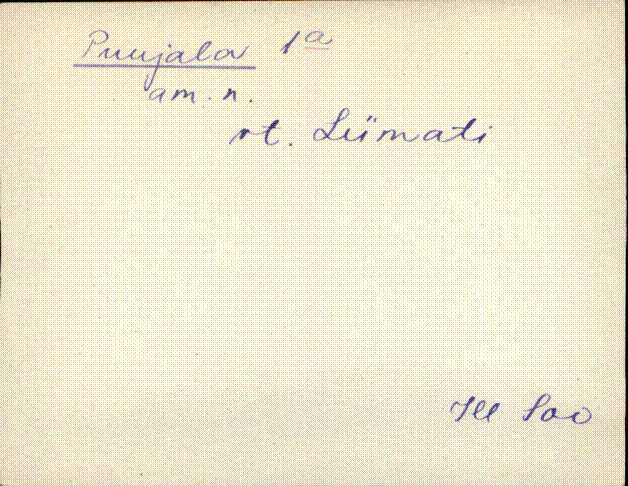 Puujala 1a
am. n.
vt. Liimati
Ill Soo